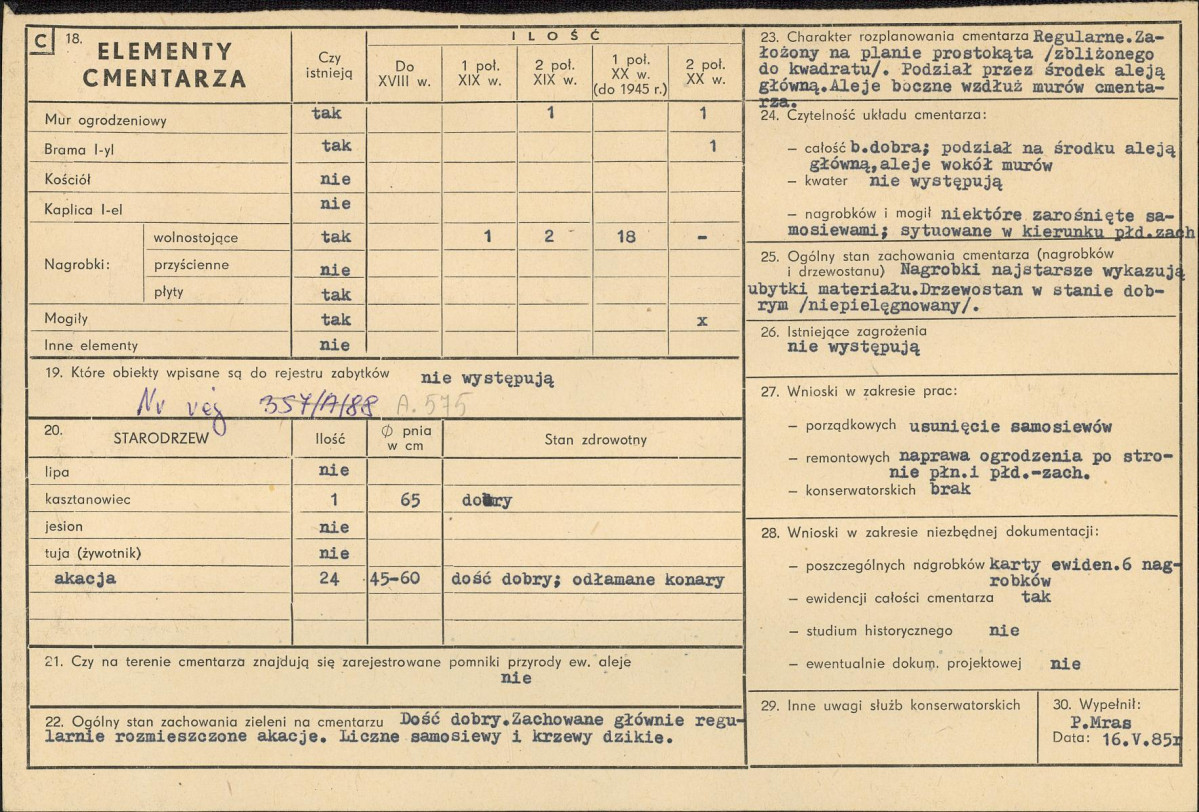 C 18. ELEMENTY CMENTARZA
Czy istnieją
ILOŚĆ
Do XVIII w.
1 poł. XIX w.
2 poł. XIX w.
1 poł. XX w. (do 1945 r.)
2 poł. XX w.
Mur ogrodzeniowy tak 1 1
Brama I-yl tak 1
Kościół nie
Kaplica I-el nie
Nagrobki: wolnostojące tak 1 2 18 -
przyścienne nie
płyty tak
Mogiły tak x
Inne elementy nie
19. Które obiekty wpisane są do rejestru zabytków nie występują
Nr rej 357/A/88 A.575
20. STARODRZEW Ilość Ø pnia w cm Stan zdrowotny
lipa nie
kasztanowiec 1 65 dobry
jesion nie
tuja (żywotnik) nie
akacja 24 45-60 dość dobry; odłamane konary
21. Czy na terenie cmentarza znajdują się zarejestrowane pomniki przyrody ew. aleje
nie
22. Ogólny stan zachowania zieleni na cmentarzu Dość dobry.Zachowane głównie regu-
larnie rozmieszczone akacje. Liczne samosiewy i krzewy dzikie.
23. Charakter rozplanowania cmentarza Regularne.Za-
łożony na planie prostokąta /zbliżonego
do kwadratu/. Podział przez środek aleją
główną.Aleje boczne wzdłuż murów cmenta-
rza.
24. Czytelność układu cmentarza:
– całość b.dobra; podział na środku aleją
główną,aleje wokół murów
– kwater nie występują
– nagrobków i mogił niektóre zarośnięte sa-
mosiewami; sytuowane w kierunku płd.zach
25. Ogólny stan zachowania cmentarza (nagrobków
i drzewostanu) Nagrobki najstarsze wykazują
ubytki materiału.Drzewostan w stanie dob-
rym /niepielęgnowany/.
26. Istniejące zagrożenia
nie występują
27. Wnioski w zakresie prac:
– porządkowych usunięcie samosiewów
– remontowych naprawa ogrodzenia po stro-
nie płn.i płd.-zach.
– konserwatorskich brak
28. Wnioski w zakresie niezbędnej dokumentacji:
– poszczególnych nagrobków karty ewiden.6 nag-
robków
– ewidencji całości cmentarza tak
– studium historycznego nie
– ewentualnie dokum. projektowej nie
29. Inne uwagi służb konserwatorskich
30. Wypełnił:
P.Mras
Data: 16.V.85r